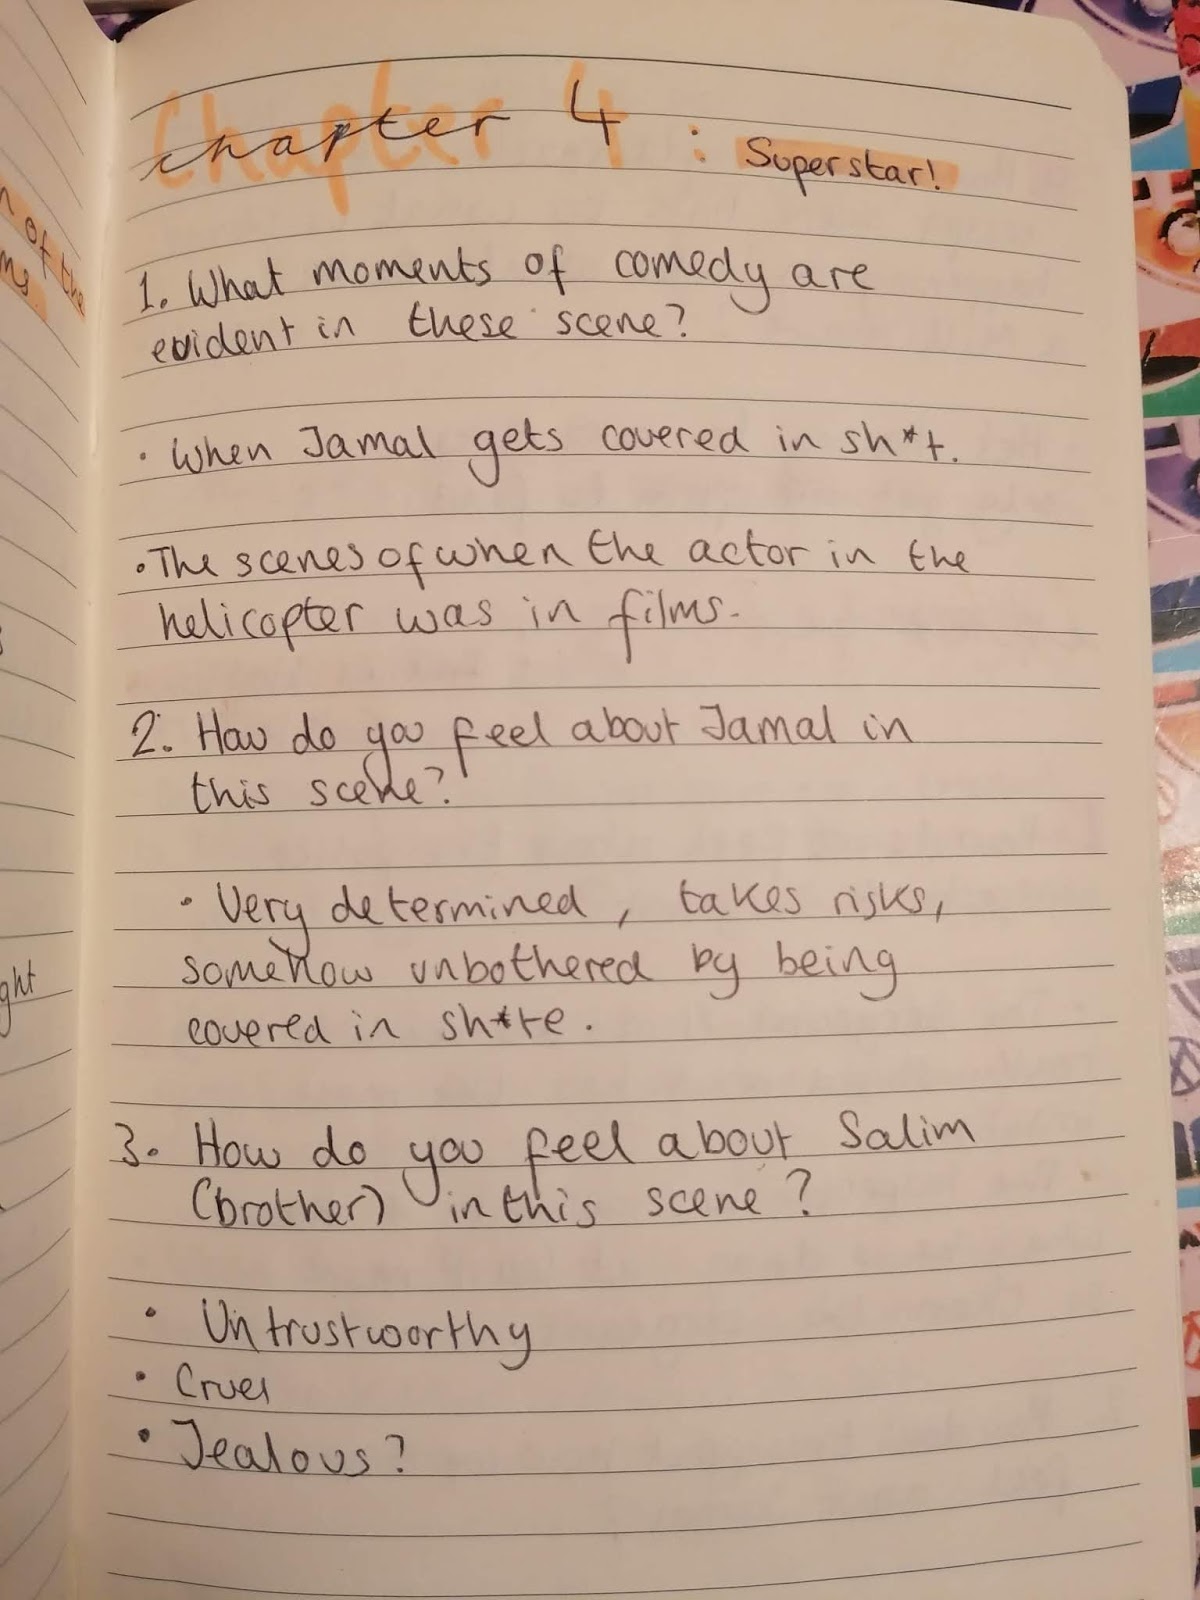 n of the
ms.
ght
Chapter 4 : Superstar!
1. What moments of comedy are
evident in these scene?
• When Jamal gets covered in sh*t.
• The scenes of when the actor in the
helicopter was in films.
2. How do you feel about Jamal in
this scene?
• Very determined, takes risks,
somehow unbothered by being
covered in sh*te.
3. How do you feel about Salim
(brother) in this scene?
• Untrustworthy
• Cruel
• Jealous?